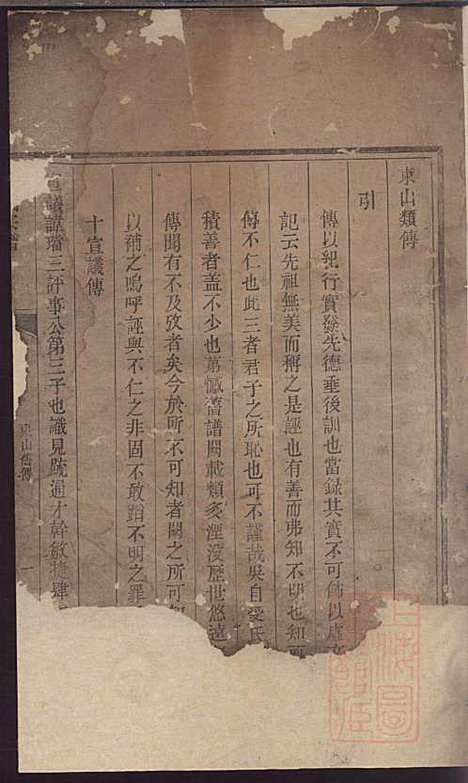 東山類傳
引
傳以紀行實發先德垂後訓也當錄其實不可飾以虛
記云先祖無美而稱之是誣也有善而弗知不明也知而
傳不仁也此三者君子之所恥也可不謹哉吳自受氏
積善者蓋不少也第慨舊譜闕載類多湮沒歷世悠遠
傳聞有不及攷者矣今於所不可知者闕之所可知
以補之嗚呼誣與不仁之非固不敢蹈不明之罪
十宣議傳
議諱瑨三評事公第三子也識見疏通才幹敏捷肆
東山類傳
一